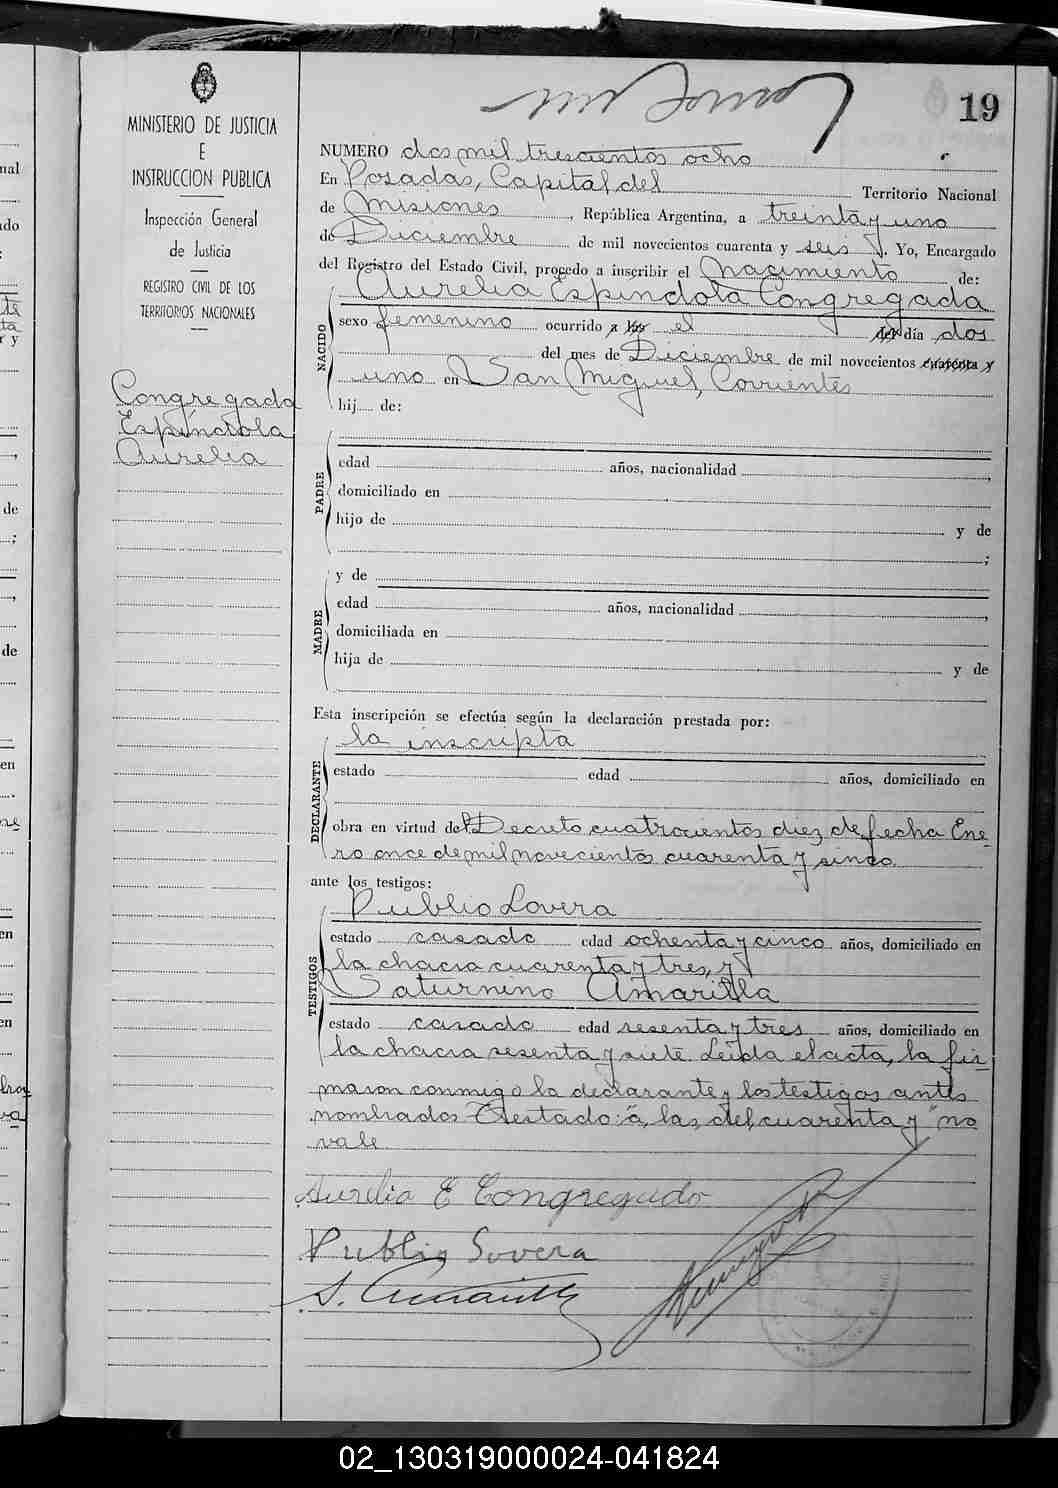 19
MINISTERIO DE JUSTICIA
E
INSTRUCCION PUBLICA
Inspección General
de Justicia
REGISTRO CIVIL DE LOS
TERRITORIOS NACIONALES
Congregada
Espíndola
Aurelia
NUMERO dos mil trescientos ocho
En Posadas, Capital del Territorio Nacional
de Misiones, República Argentina, a treinta y uno
de Diciembre de mil novecientos cuarenta y seis. Yo, Encargado
del Registro del Estado Civil, procedo a inscribir el nacimiento de:
Aurelia Espíndola Congregada
NACIDO
sexo femenino ocurrido a las el del día dos
del mes de Diciembre de mil novecientos cuarenta y
uno en San Miguel, Corrientes
hij de:
PADRE
edad años, nacionalidad ,
domiciliado en
hijo de y de
;
MADRE
y de
edad años, nacionalidad ,
domiciliada en
hija de y de
Esta inscripción se efectúa según la declaración prestada por:
DECLARANTE
la inscripta
estado edad años, domiciliado en
obra en virtud del Decreto cuatrocientos diez de fecha Ene-
ro once de mil novecientos cuarenta y cinco
ante los testigos:
TESTIGOS
Publio Lovera
estado casado edad ochenta y cinco años, domiciliado en
la chacra cuarenta y tres, y
Saturnino Amarilla
estado casado edad sesenta y tres años, domiciliado en
la chacra sesenta y siete. Leída el acta, la fir-
maron conmigo la declarante y los testigos antes
nombrados Testado: "a, las, del, cuarenta y" no
vale
Aurelia E Congregado
Publio Lovera
S. Amarilla
02_130319000024-041824